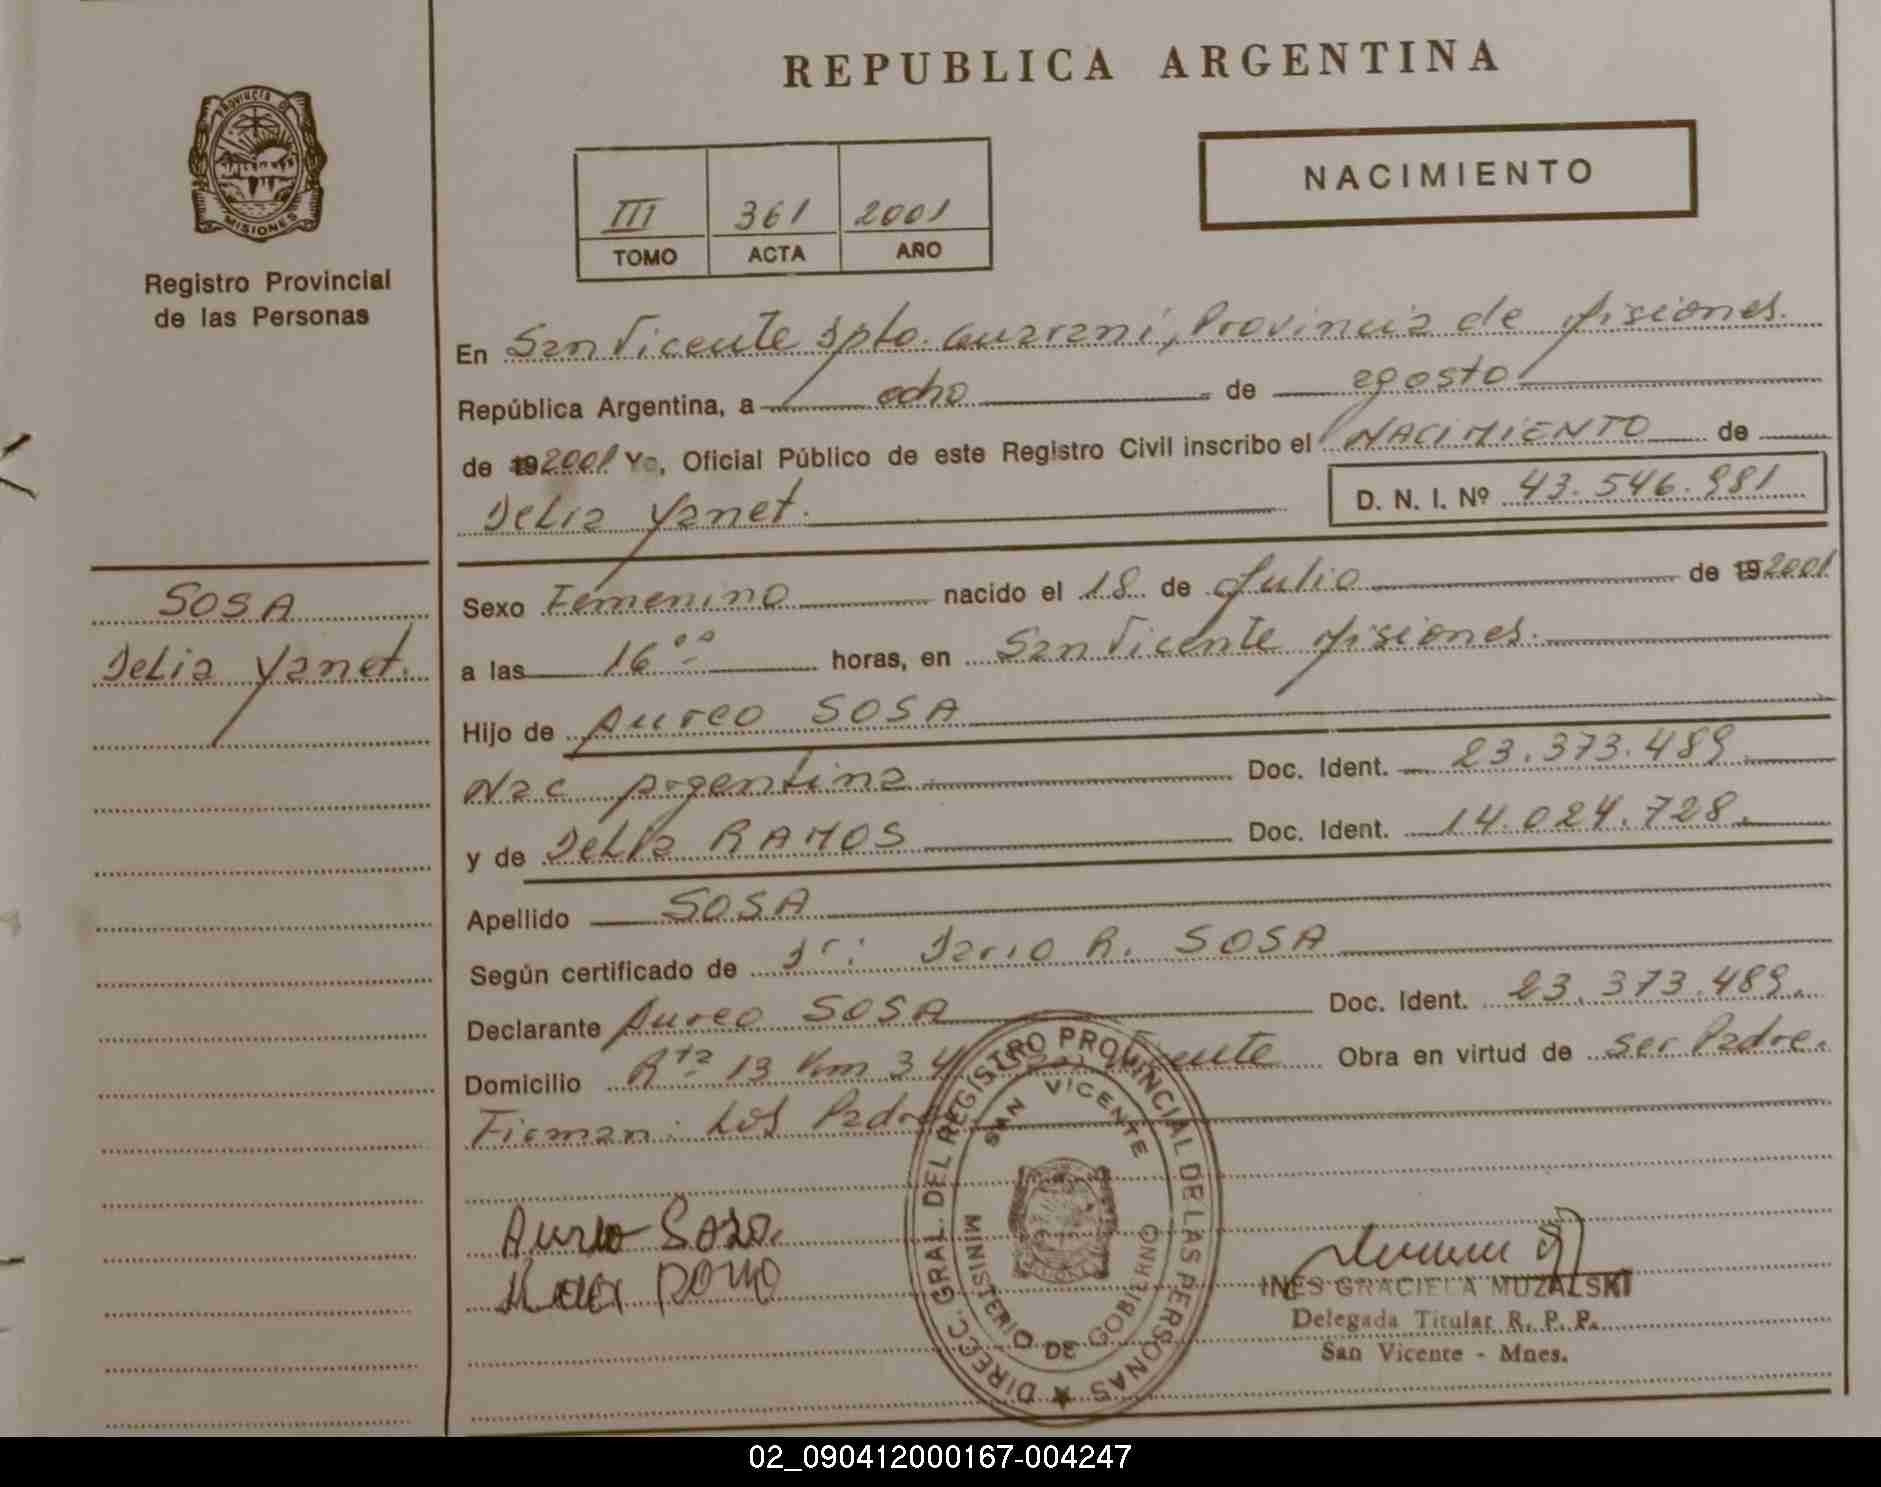 REPUBLICA ARGENTINA
PROVINCIA DE
MISIONES
Registro Provincial
de las Personas
NACIMIENTO
III 361 2001
TOMO ACTA AÑO
En San Vicente Dpto. Guarani, Provincia de Misiones.
República Argentina, a ocho de agosto
de 192001 Yo, Oficial Público de este Registro Civil inscribo el NACIMIENTO de
Delia Yanet.
D. N. I. Nº 43.546.981
SOSA
Delia Yanet.
Sexo Femenino nacido el 18 de Julio de 192001
a las 16°° horas, en San Vicente Misiones.
Hijo de Aureo SOSA
Nac Argentina. Doc. Ident. 23.373.489.
y de Delia RAMOS Doc. Ident. 14.024.728.
Apellido SOSA
Según certificado de Dr: Dario R. SOSA
Declarante Aureo SOSA Doc. Ident. 23.373.489.
Domicilio Rta 13 Km 34 San Vicente Obra en virtud de ser Padre.
Firman: Los Padres
Aureo Sosa.
DIRECC. GRAL. DEL REGISTRO PROVINCIAL DE LAS PERSONAS
SAN VICENTE
MINISTERIO DE GOBIERNO
MISIONES
INES GRACIELA MUZALSKI
Delegada Titular R. P. P.
San Vicente - Mnes.
02_090412000167-004247